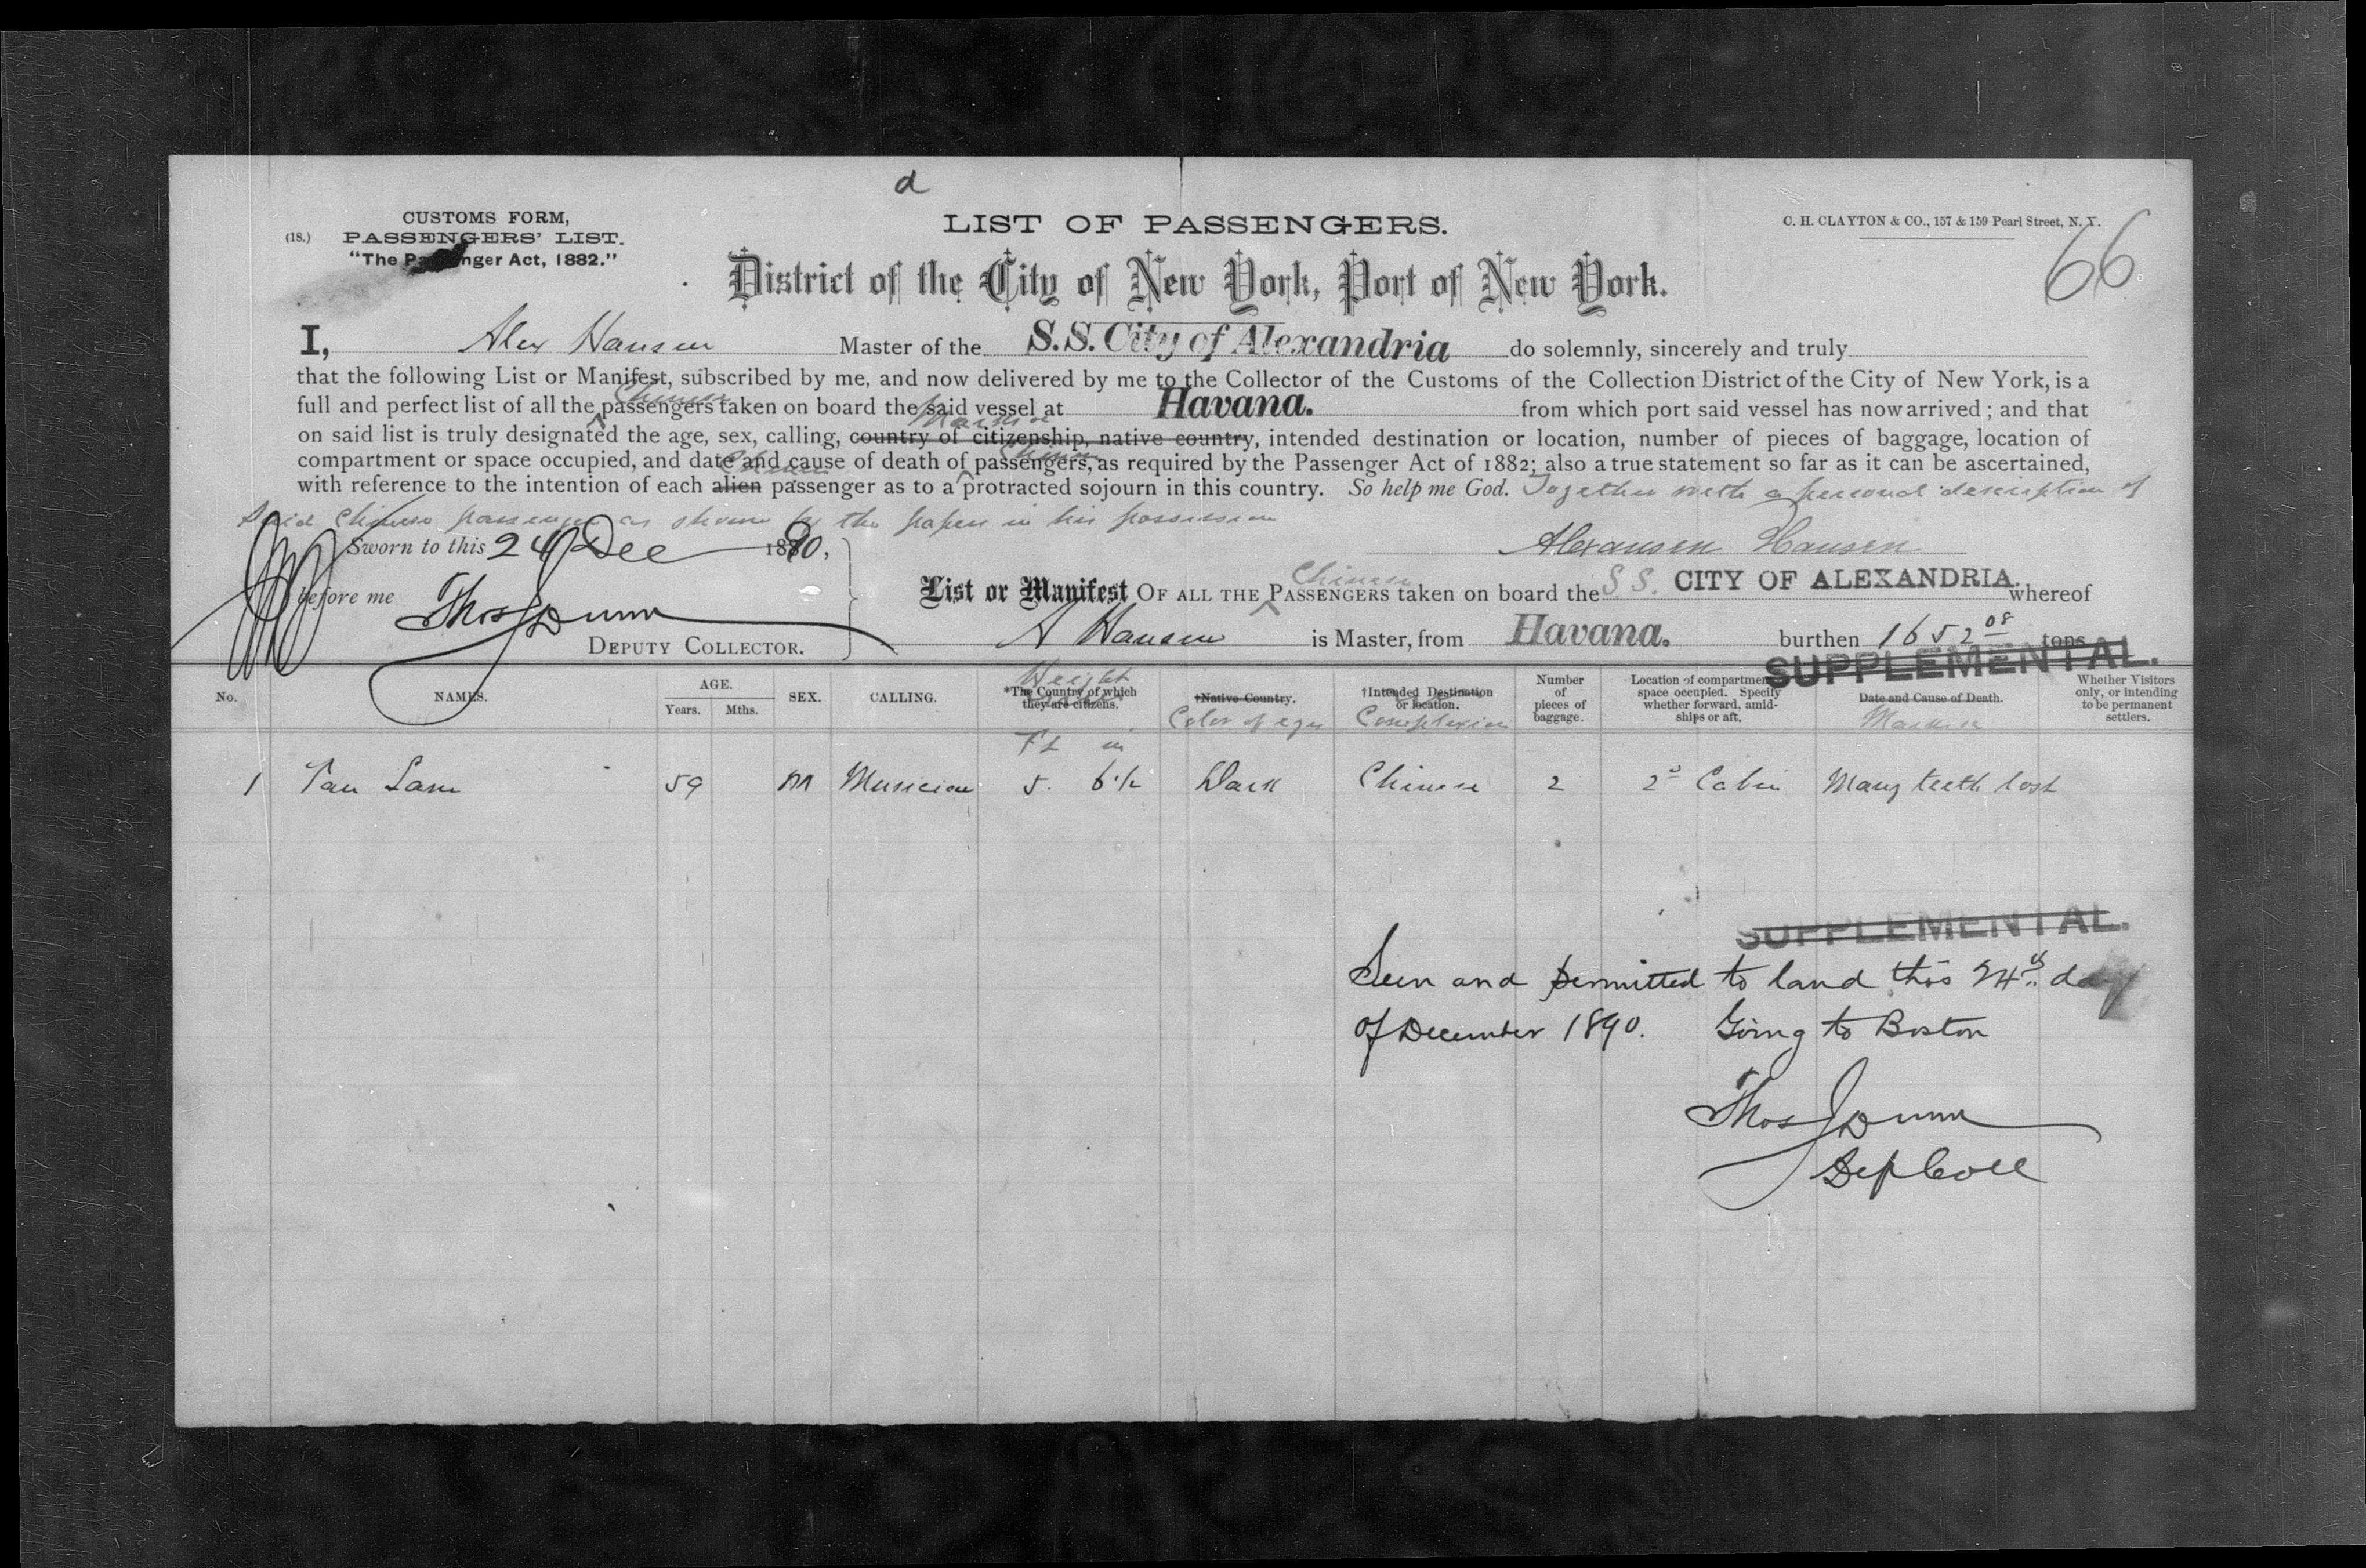 d
CUSTOMS FORM,
(18.) PASSENGERS' LIST.
"The Passenger Act, 1882."
LIST OF PASSENGERS.
C. H. CLAYTON & CO., 157 & 159 Pearl Street, N. Y.
66
District of the City of New York, Port of New York.
I, Alex Hansen Master of the S.S. City of Alexandria do solemnly, sincerely and truly
that the following List or Manifest, subscribed by me, and now delivered by me to the Collector of the Customs of the Collection District of the City of New York, is a
Chinese
full and perfect list of all the passengers taken on board the said vessel at Havana. from which port said vessel has now arrived; and that
on said list is truly designated the age, sex, calling, country of citizenship, native country, intended destination or location, number of pieces of baggage, location of
Chinese
compartment or space occupied, and date and cause of death of passengers, as required by the Passenger Act of 1882; also a true statement so far as it can be ascertained,
Chinese
with reference to the intention of each alien passenger as to a protracted sojourn in this country. So help me God. Together with a personal description of
said Chinese passenger as shown by the papers in his possession
Sworn to this 24 Dec 1890,
Hansen
before me Thos J Dunn
DEPUTY COLLECTOR.
Chinese
List or Manifest OF ALL THE PASSENGERS taken on board the S.S. CITY OF ALEXANDRIA. whereof
A Hansen is Master, from Havana. burthen 1652 08 tons
SUPPLEMENTAL.
No. NAMES. AGE. Years. Mths. SEX. CALLING. Height *The Country of which they are citizens. †Native Country. Color of eyes †Intended Destination or location. Complexion Number of pieces of baggage. Location of compartment space occupied. Specify whether forward, amidships or aft. Date and Cause of Death. Whether Visitors only, or intending to be permanent settlers.
Ft in
1 Lam 59 M Musician 5. 6 1/2 Dark Chinese 2 2d Cabin Many teeth lost
SUPPLEMENTAL.
Seen and permitted to land this 24th day
of December 1890. Going to Boston
Thos J Dunn
Dep Coll